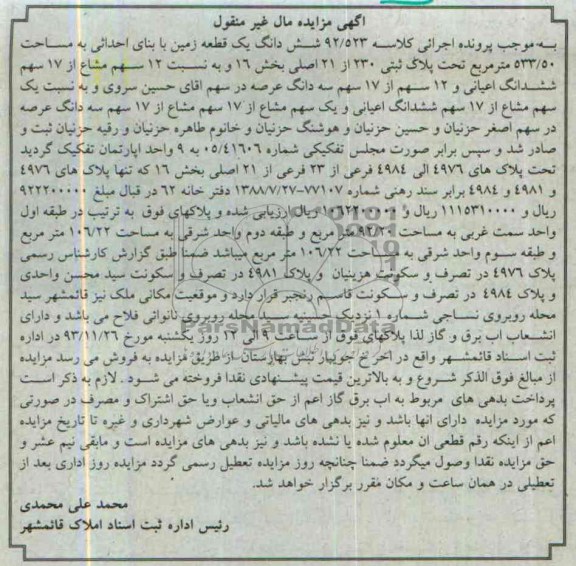 آگهی مزایده مال غیر منقول
به موجب پرونده اجرائی کلاسه ۹۲/۵۲۳ شش دانگ یک قطعه زمین با بنای احداثی به مساحت
۵۳۳/۵۰ مترمربع تحت پلاک ثبتی ۲۳۰ از ۲۱ اصلی بخش ۱۶ و به نسبت ۱۲ سهم مشاع از ۱۷ سهم
ششدانگ اعیانی و ۱۲ سهم از ۱۷ سهم سه دانگ عرصه در سهم اقای حسین سروی و به نسبت یک
سهم مشاع از ۱۷ سهم ششدانگ اعیانی و یک سهم مشاع از ۱۷ سهم مشاع از ۱۷ سهم سه دانگ عرصه
در سهم اصغر حزنیان و حسین حزنیان و هوشنگ حزنیان و خانوم طاهره حزنیان و رقیه حزنیان ثبت و
صادر شد و سپس برابر صورت مجلس تفکیکی شماره ۰۵/۴۱۶۰۶ به ۹ واحد اپارتمان تفکیک گردید
تحت پلاک های ۴۹۷۶ الی ۴۹۸۴ فرعی از ۲۳ فرعی از ۲۱ اصلی بخش ۱۶ که تنها پلاک های ۴۹۷۶
و ۴۹۸۱ و ۴۹۸۴ برابر سند رهنی شماره ۷۷۱۰۷-۱۳۸۸/۷/۲۷ دفتر خانه ۶۲ در قبال مبلغ ۹۲۲۲۰۰۰۰۰
ریال و ۱۱۱۵۳۱۰۰۰۰ ریال و ۱۰۶۲۲۰۰۰۰۰ ریال ارزیابی شده و پلاکهای فوق به ترتیب در طبقه اول
واحد سمت غربی به مساحت ۹۲/۲۰ متر مربع و طبقه دوم واحد شرقی به مساحت ۱۰۶/۲۲ متر مربع
و طبقه سوم واحد شرقی به مساحت ۱۰۶/۲۲ متر مربع میباشد ضمنا طبق گزارش کارشناس رسمی
پلاک ۴۹۷۶ در تصرف و سکونت هزینیان و پلاک ۴۹۸۱ در تصرف و سکونت سید محسن واحدی
و پلاک ۴۹۸۴ در تصرف و سکونت قاسم رنجبر قرار دارد و موقعیت مکانی ملک نیز قائمشهر سید
محله روبروی نساجی شماره ۱ نزدیک حسینیه سید محله روبروی نانوائی فلاح می باشد و دارای
انشعاب اب برق و گاز لذا پلاکهای فوق از ساعت ۹ الی ۱۲ روز یکشنبه مورخ ۹۳/۱۱/۲۶ در اداره
ثبت اسناد قائمشهر واقع در اخر خ جویبار نبش بهارستان از طریق مزایده به فروش می رسد مزایده
از مبالغ فوق الذکر شروع و به بالاترین قیمت پیشنهادی نقدا فروخته می شود . لازم به ذکر است
پرداخت بدهی های مربوط به اب برق گاز اعم از حق انشعاب ویا حق اشتراک و مصرف در صورتی
که مورد مزایده دارای انها باشد و نیز بدهی های مالیاتی و عوارض شهرداری و غیره تا تاریخ مزایده
اعم از اینکه رقم قطعی ان معلوم شده یا نشده باشد و نیز بدهی های مزایده است و مابقی نیم عشر و
حق مزایده نقدا وصول میگردد ضمنا چنانچه روز مزایده تعطیل رسمی گردد مزایده روز اداری بعد از
تعطیلی در همان ساعت و مکان مقرر برگزار خواهد شد.
محمد علی محمدی
رئیس اداره ثبت اسناد املاک قائمشهر
ParsNamadData